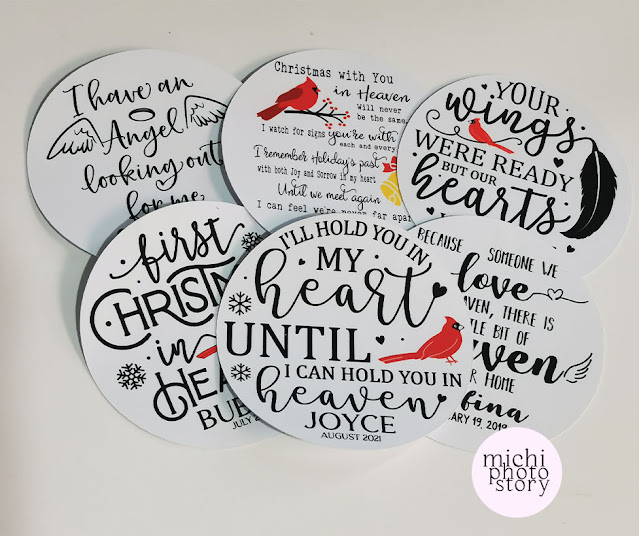 I have an
Angel
looking out
for me
Christmas with You
in Heaven
will never
be the same
I watch for signs you're with
each and every
I remember Holiday's past
with both Joy and Sorrow in my heart
Until we meet again
I can feel we're never far apart
YOUR
wings
WERE READY
BUT OUR
hearts
first
CHRISTM
in
HEA
BUB
JULY
I'LL HOLD YOU IN
MY
heart
UNTIL
I CAN HOLD YOU IN
heaven
JOYCE
AUGUST 2021
BECAUSE SOMEONE WE
love
AVEN, THERE IS
LE BIT OF
ven
R HOME
fina
ARY 19, 2018
michi
photo
story